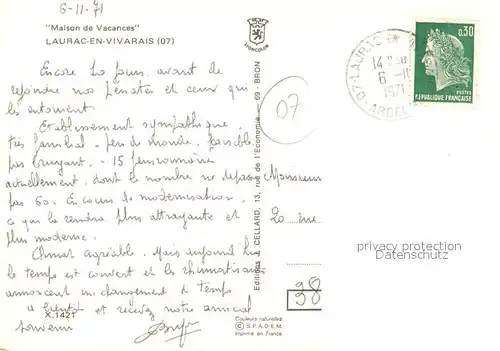 6-11-71
"Maison de Vacances"
LAURAC-EN-VIVARAIS (07)
Encore 10 jours avant de
rejoindre nos pénates et ceux qui
les entourent.
Etablissement sympathique,
très familial - peu de monde, paisible
pas bruyant - 15 pensionnaires
actuellement, dont le nombre ne dépasse
pas 60. En cours de modernisation,
ce qui le rendra plus attrayante et
plus moderne.
Climat agréable. Mais aujourd'hui
le temps est couvert et les rhumatisants
annoncent un changement de temps
à bientôt et recevez notre amical
souvenir
X.1421
LYONCOLOR
Editions J. CELLARD, 13, rue de l'Economie — 69 - BRON
Couleurs naturelles
© S.P.A.D.E.M.
Imprimé en France
07
Monsieur
20 rue
98
98
07-LAURAC
14 H
6 -11
1971
ARDÈCHE
0,30
POSTES
REPUBLIQUE FRANÇAISE
privacy protection
Datenschutz